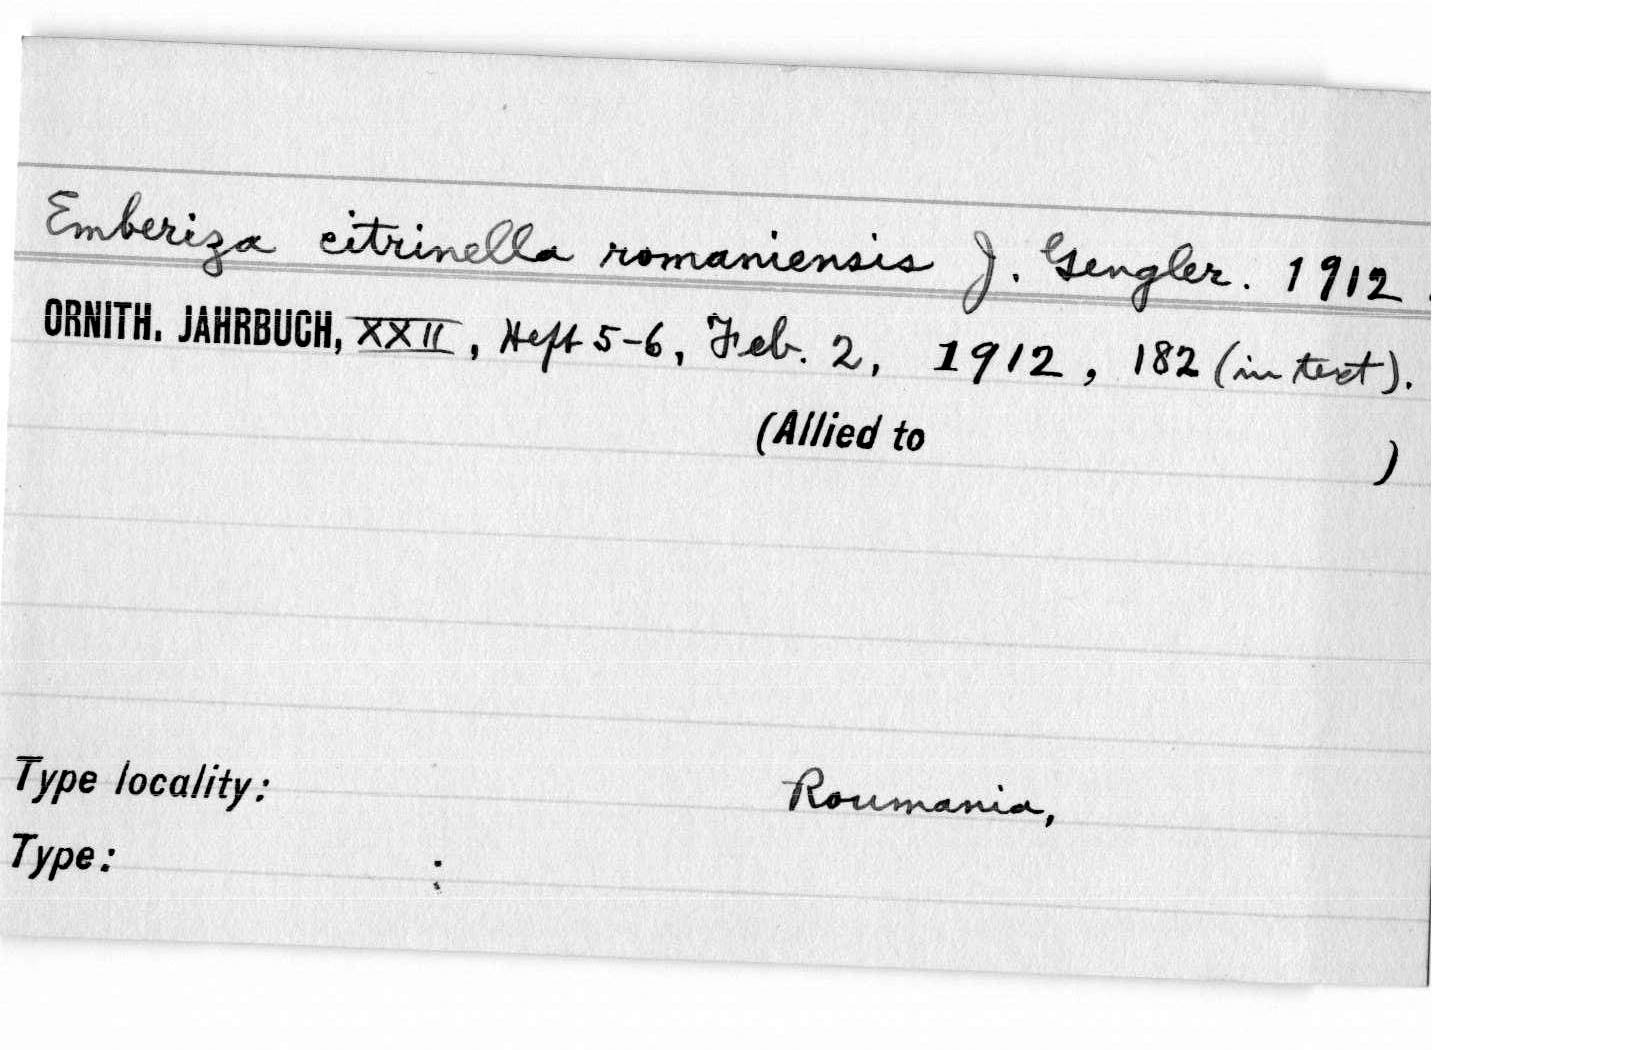 Emberiza citrinella romaniensis J. Gengler. 1912.
ORNITH. JAHRBUCH, XXII, Heft 5-6, Feb. 2, 1912, 182 (in text).
(Allied to )
Type locality: Roumania,
Type: :